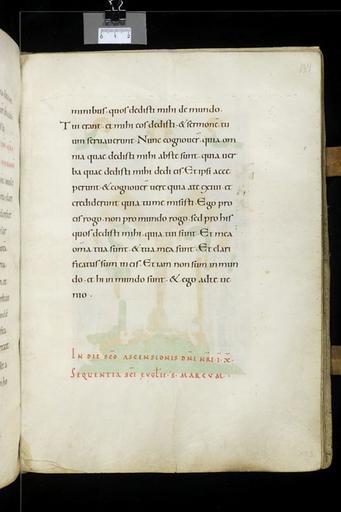 minibus. quos dedisti mihi de mundo.
Tui erant. et mihi eos dedisti. & sermonē tu
um seruauerunt. Nunc cognouer̄. quia om
nia quae dedisti mihi abs te sunt. quia uer
ba quae dedisti mihi dedi eis. Et ipsi acce
perunt. & cognouer̄ uere quia a te exiui. et
crediderunt quia tu me misisti. Ego pro
eis rogo. non pro mundo rogo. sed pro his
quos dedisti mihi. quia tui sunt. Et mea
om̄ia tua sunt. & tua mea sunt. Et clari
ficatus sum in eis. Et iam non sum in mun
do. et hi in mundo sunt. & ego ad te ue
nio.
IN DIE SC̄O ASCENSIONIS DN̄I NR̄I I. X̄.
SEQUENTIA SC̄I EVGL̄II. S. MARCUM.